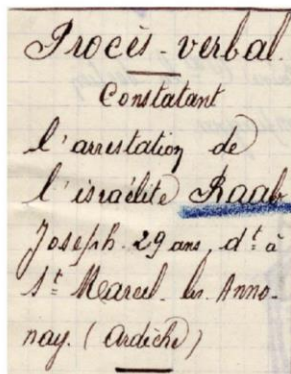 Procès-verbal.
Constatant
l'arrestation de
l'israélite Raab
Joseph 29 ans, dt à
St Marcel les Anno-
nay. (Ardèche)